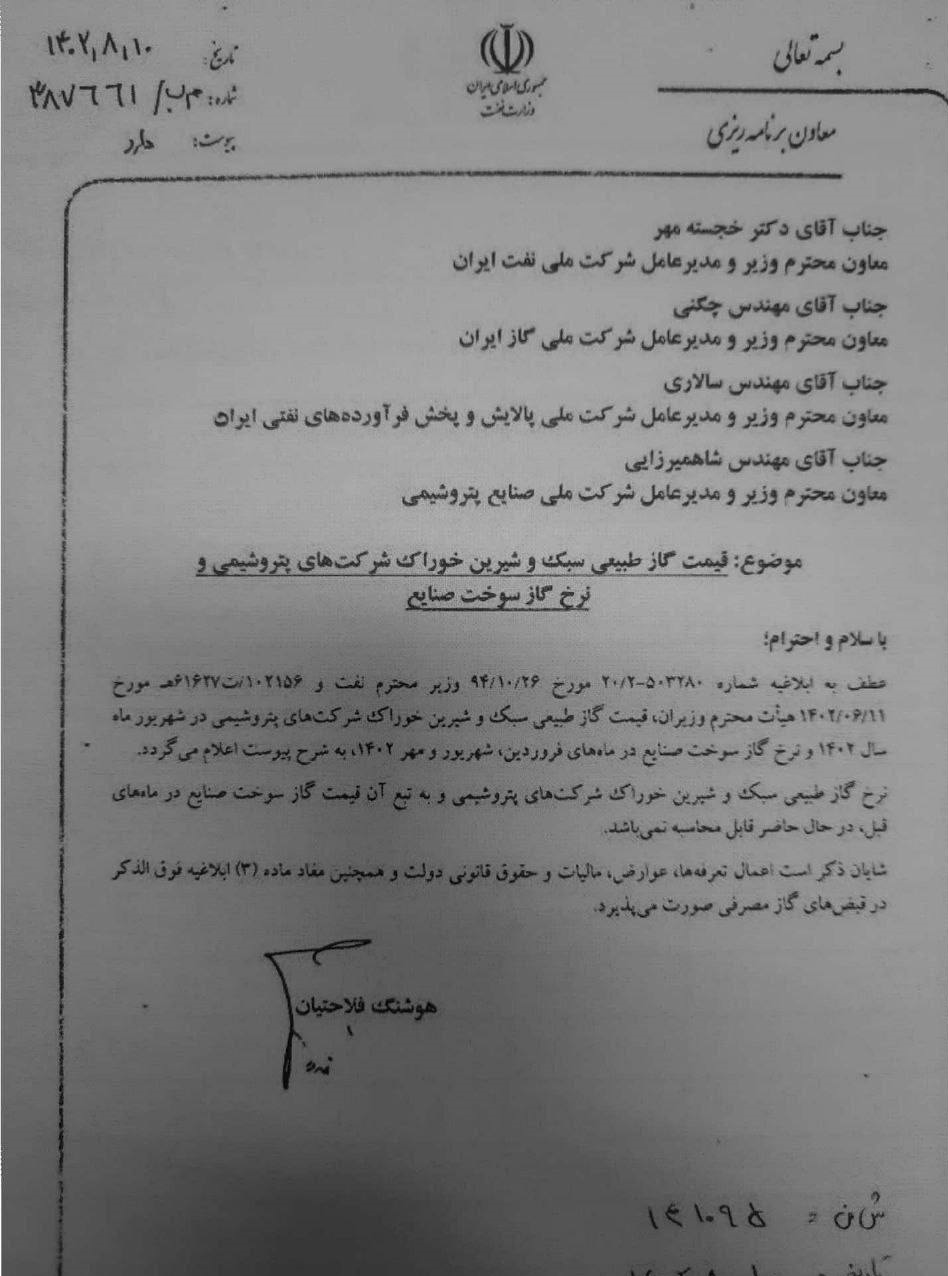 بسمه تعالی
معاون برنامه ریزی
جمهوری اسلامی ایران
وزارت نفت
تاریخ: ۱۴۰۲/۸/۱۰
شماره: م ب/ ۳۸۷۶۶۱
پیوست: دارد
جناب آقای دکتر خجسته مهر
معاون محترم وزیر و مدیرعامل شرکت ملی نفت ایران
جناب آقای مهندس چگنی
معاون محترم وزیر و مدیرعامل شرکت ملی گاز ایران
جناب آقای مهندس سالاری
معاون محترم وزیر و مدیرعامل شرکت ملی پالایش و پخش فرآورده‌های نفتی ایران
جناب آقای مهندس شاهمیرزایی
معاون محترم وزیر و مدیرعامل شرکت ملی صنایع پتروشیمی
موضوع: قیمت گاز طبیعی سبک و شیرین خوراک شرکت‌های پتروشیمی و
نرخ گاز سوخت صنایع
با سلام و احترام؛
عطف به ابلاغیه شماره ۵۰۳۲۸۰-۲۰/۲ مورخ ۹۴/۱۰/۲۶ وزیر محترم نفت و ۱۰۲۱۵۶/ت۶۱۶۲۷هـ مورخ
۱۴۰۲/۰۶/۱۱ هیأت محترم وزیران، قیمت گاز طبیعی سبک و شیرین خوراک شرکت‌های پتروشیمی در شهریور ماه
سال ۱۴۰۲ و نرخ گاز سوخت صنایع در ماه‌های فروردین، شهریور و مهر ۱۴۰۲، به شرح پیوست اعلام می‌گردد.
نرخ گاز طبیعی سبک و شیرین خوراک شرکت‌های پتروشیمی و به تبع آن قیمت گاز سوخت صنایع در ماه‌های
قبل، در حال حاضر قابل محاسبه نمی‌باشد.
شایان ذکر است اعمال تعرفه‌ها، عوارض، مالیات و حقوق قانونی دولت و همچنین مفاد ماده (۳) ابلاغیه فوق الذکر
در قبض‌های گاز مصرفی صورت می‌پذیرد.
هوشنگ فلاحتیان